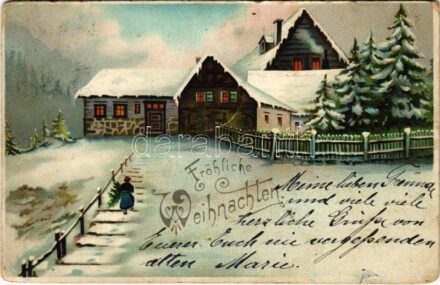 darabanth
Fröhliche
Weihnachten
Meine lieben
und viele viele
herzliche Grüße von
Eurer Euch nie vergessenden
alten Marie.